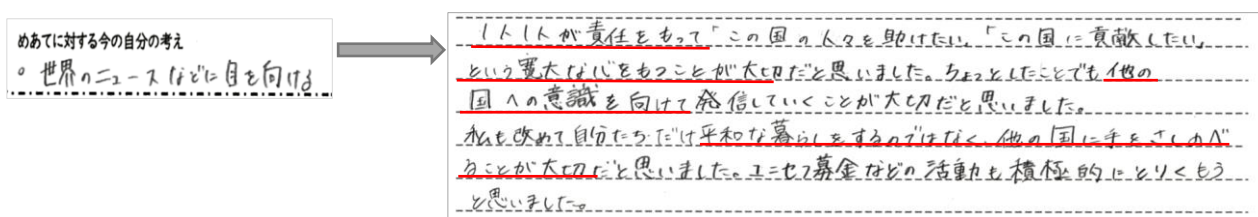 めあてに対する今の自分の考え
。世界のニュースなどに目を向ける
1人1人が責任をもって「この国の人々を助けたい」「この国に貢献したい」
という寛大な心をもつことが大切だと思いました。ちょっとしたことでも他の
国への意識を向けて発信していくことが大切だと思いました。
私も改めて自分たちだけ平和な暮らしをするのではなく、他の国に手をさしのべ
ることが大切だと思いました。ユニセフ募金などの活動も積極的にとりくもう
と思いました。